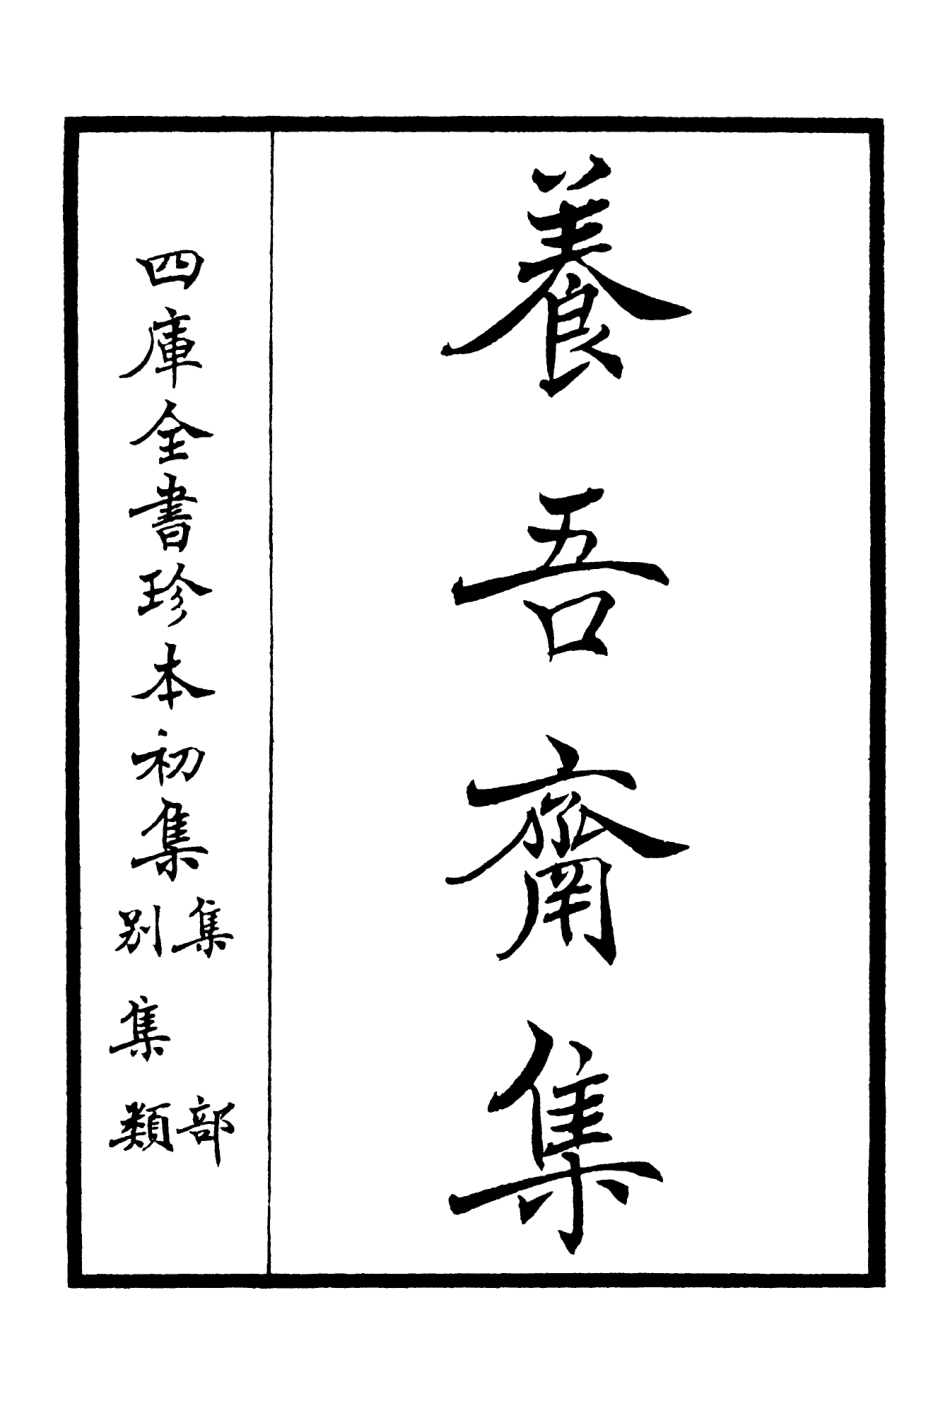 養吾齋集
四庫全書珍本初集
集部
别集類